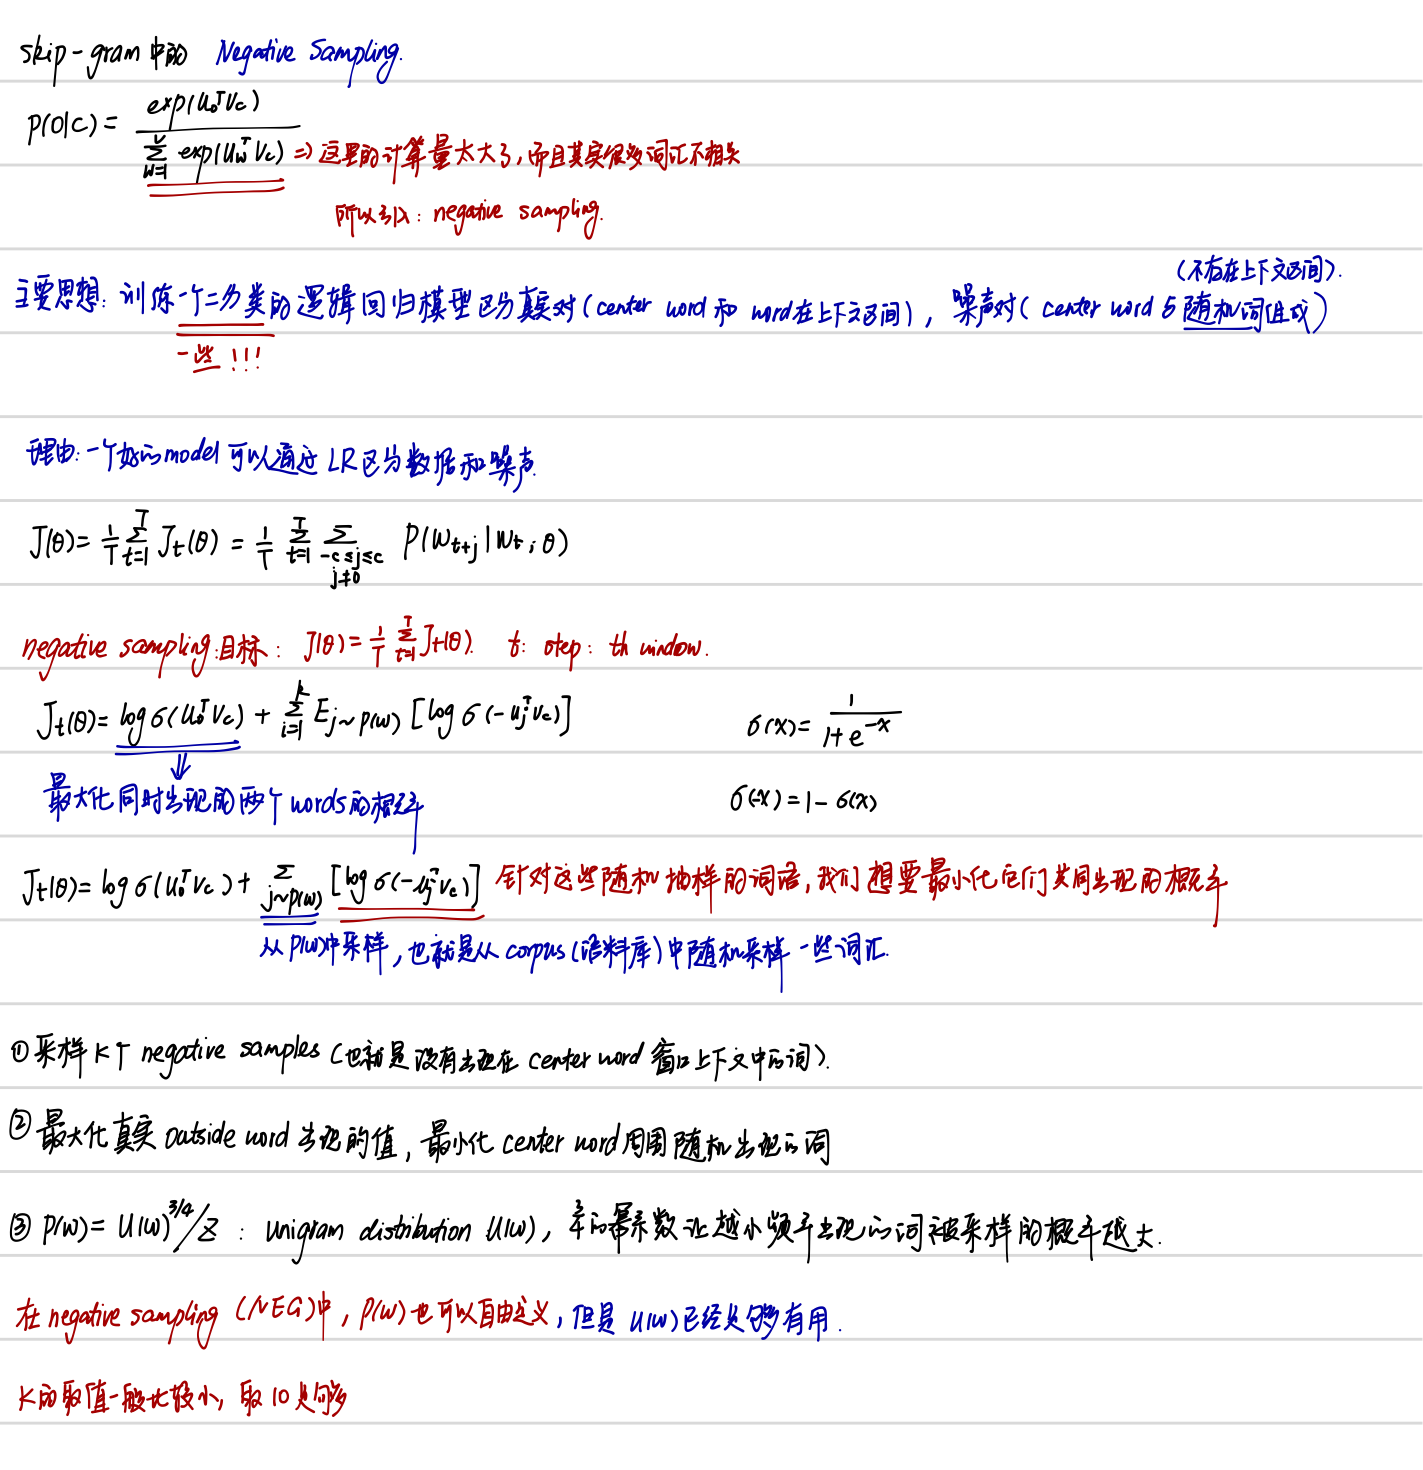 skip-gram 中的 Negative Sampling.
p(o|c) = exp(u_o^T v_c) / Σ_{w=1}^{V} exp(u_w^T v_c) ⇒ 这里的计算量太大了,而且其实很多词汇不相关
所以引入: negative sampling.
(不存在上下文区间).
主要思想: 训练一个二分类的逻辑回归模型区分真实对(center word 和 word在上下文区间), 噪声对( center word 与随机词组成)
一些 !!!
理由: 一个好的model 可以通过 LR 区分数据和噪声.
J(θ) = 1/T Σ_{t=1}^{T} J_t(θ) = 1/T Σ_{t=1}^{T} Σ_{-c≤j≤c, j≠0} P(w_{t+j} | w_t; θ)
negative sampling 目标: J(θ) = 1/T Σ_{t=1}^{T} J_t(θ). t: step: th window.
J_t(θ) = log σ(u_o^T v_c) + Σ_{i=1}^{k} E_{j~p(w)} [log σ(-u_j^T v_c)] σ(x) = 1/(1+e^{-x})
最大化同时出现的两个words的概率 σ(-x) = 1 - σ(x)
J_t(θ) = log σ(u_o^T v_c) + Σ_{j~p(w)} [log σ(-u_j^T v_c)] 针对这些随机抽样的词语,我们想要最小化它们共同出现的概率
从 p(w)中采样, 也就是从 corpus (语料库)中随机采样一些词汇.
① 采样 K个 negative samples (也就是没有出现在 center word 窗口上下文中的词).
② 最大化真实 outside word 出现的值, 最小化 center word 周围随机出现的词
③ p(w) = U(w)^{3/4}/Z : unigram distribution U(w), 3/4的幂系数让越小频率出现的词被采样的概率越大.
在 negative sampling (NEG)中, p(w) 也可以自由定义, 但是 U(w)已经足够有用.
K的取值一般比较小, 取 10 足够